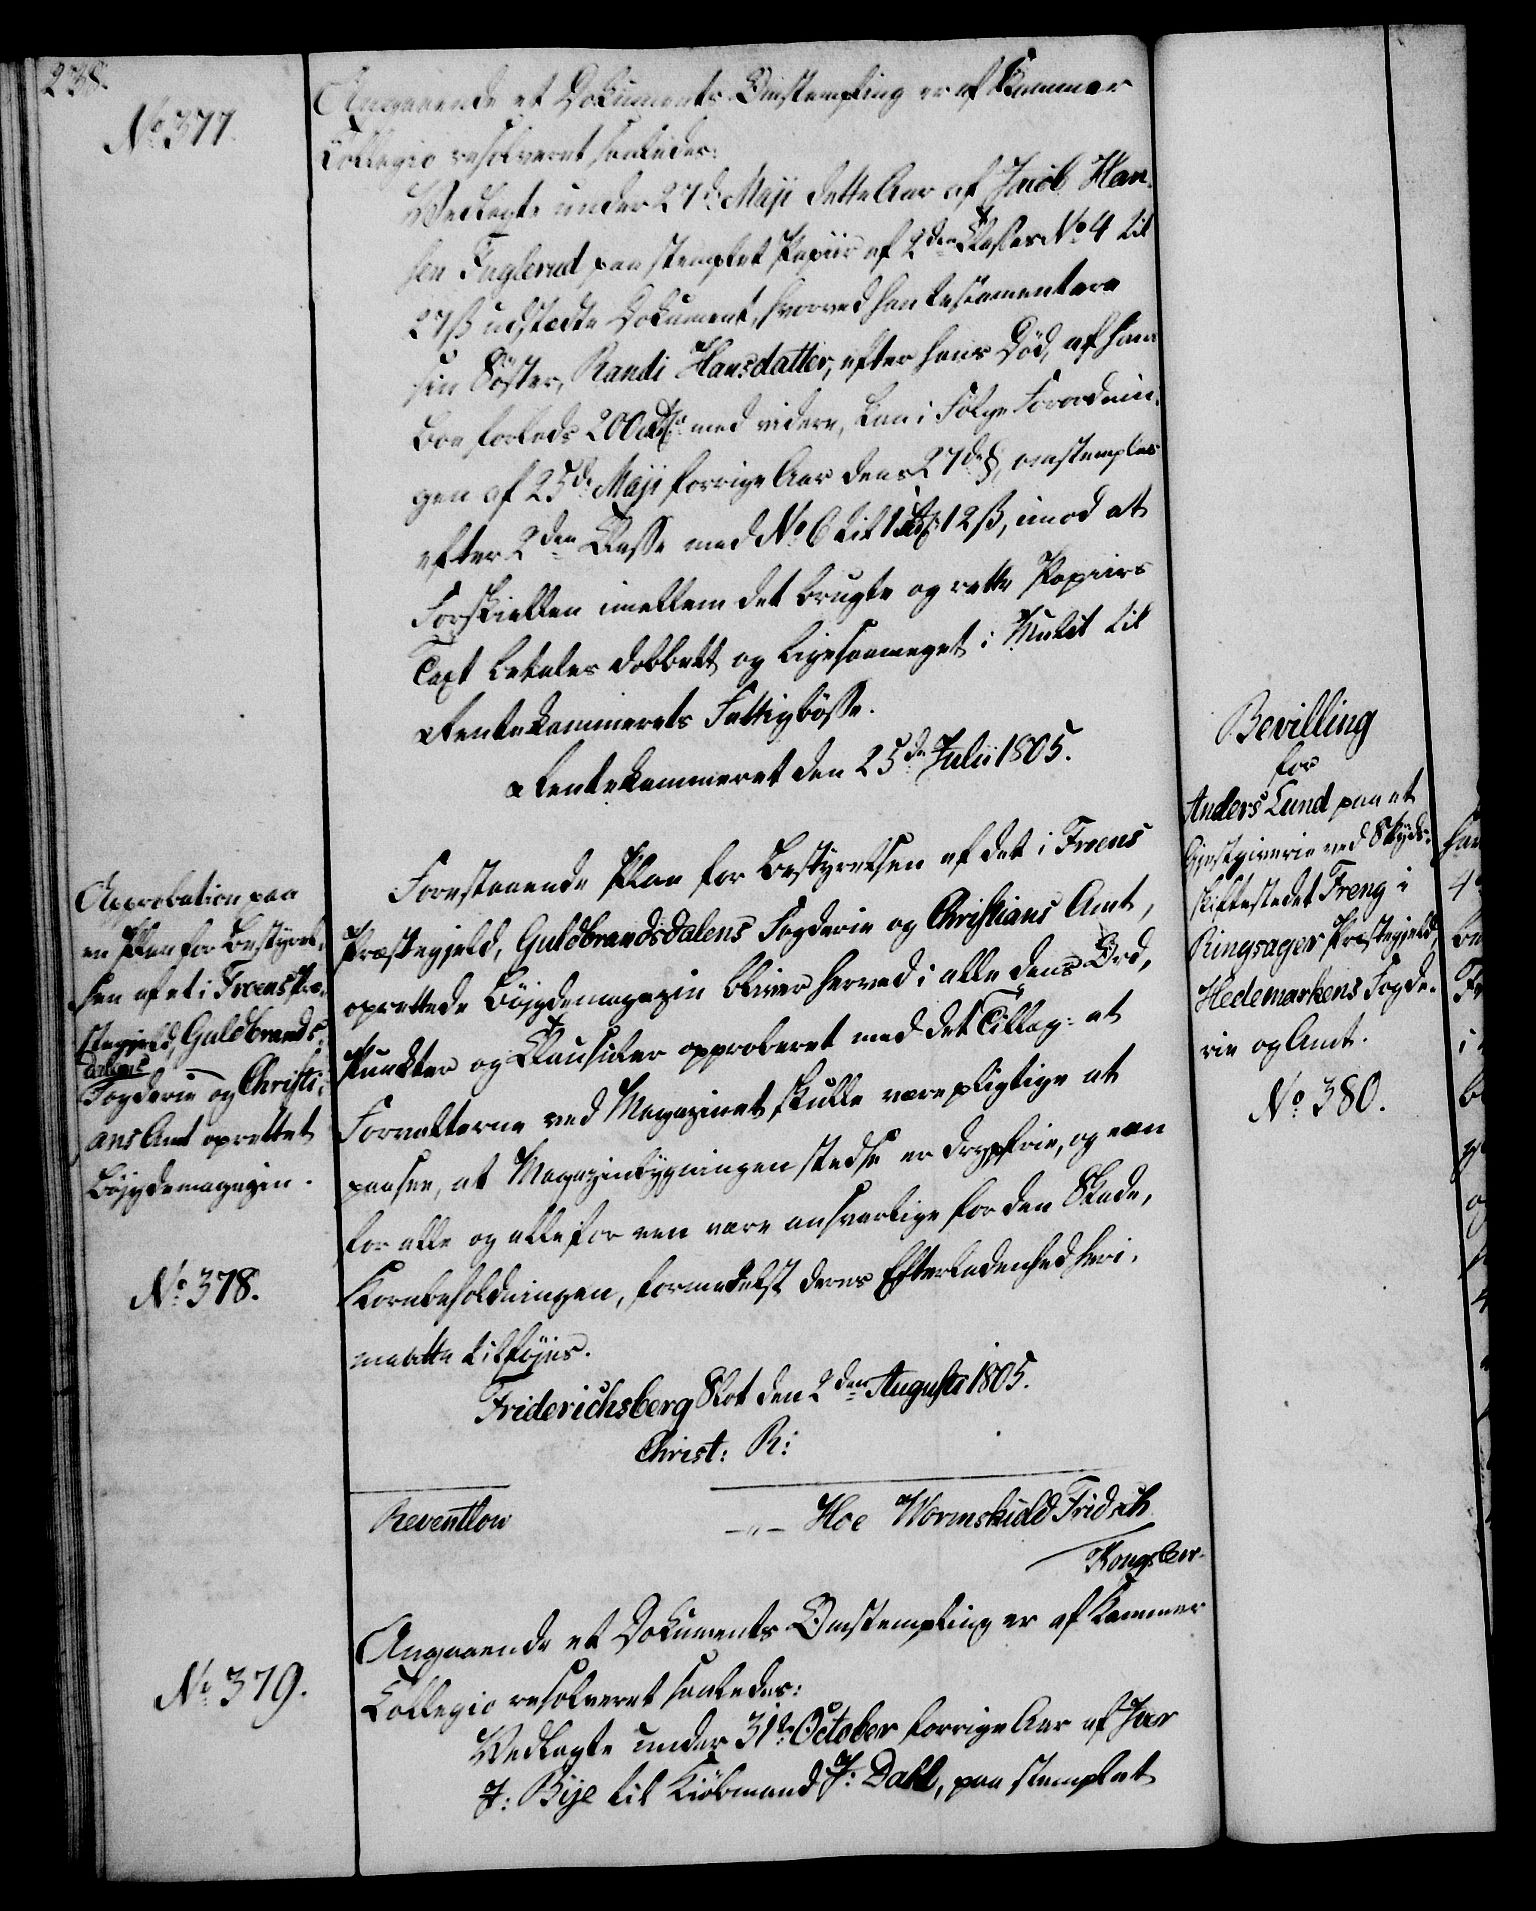 238.
No 377.
Angaaende et Dokuments Omstempling er af Kammer
Collegio resolveret saaledes:
Vedlagte under 27de Maji dette Aar af Jacob Han-
sen Fuglerud paa stemplet Papiir af 2den Classes No 4 til
27 ß udstædte Dokument, hvorved han testamentere
sin Söster, Randi Hansdatter, efter hans Död, af hans
Boe forlods 200 rdr med videre, kan i Fölge Forordnin-
gen af 25de Maji forrige Aar dens 27de §, omstemples
efter 2den Classe med No 6 til 1 rdr 12 ß, imod at
Forskiellen imellem det brugte og rette Papiirs
Taxt betales dobbelt og ligesaameget i Mulct til
Rentekammerets Fattigbösse.
Rentekammeret den 25de Julii 1805.
Approbation paa
en Plan for Bestyrel-
sen af et i Froens Præ-
stegjeld, Guldbrands-
dalens
Fogderie og Christi-
ans Amt oprettet
Böjgdemagazin.
No 378.
Forestaaende Plan for Bestyrelsen af det i Froens
Præstegjeld, Guldbrandsdalens Fogderie og Christians Amt,
oprettede Böjgdemagazin bliver herved i alle dens Ord,
Puncter og Clausuler approberet med det Tillæg: at
Forvalterne ved Magazinet skulle være pligtige at
paasee, at Magazinbygningen stedse er drypfrie, og een
for alle og alle for een være ansvarlige for den Skade,
Kornbeholdningen, formedelst deres Efterladenhed heri,
maatte tilföjes.
Friderichsberg Slot den 2den Augusti 1805.
Christ: R:
Reventlow
-„- Hoe Wormskiold Fridsch
Kongsber.
No 379.
Angaaende et Dokuments Omstempling er af Kammer
Collegio resolveret saaledes:
Vedlagte under 31te October forrige Aar af Jver
J: Bye til Kiöbmand P: Dahl, paa stemplet
Bevilling
for
Anders Lund paa et
Gjestgiverie ved Skyds-
skiftestedet Freng i
Ringsager Præstegjeld,
Hedemarkens Fogde-
rie og Amt.
No 380.